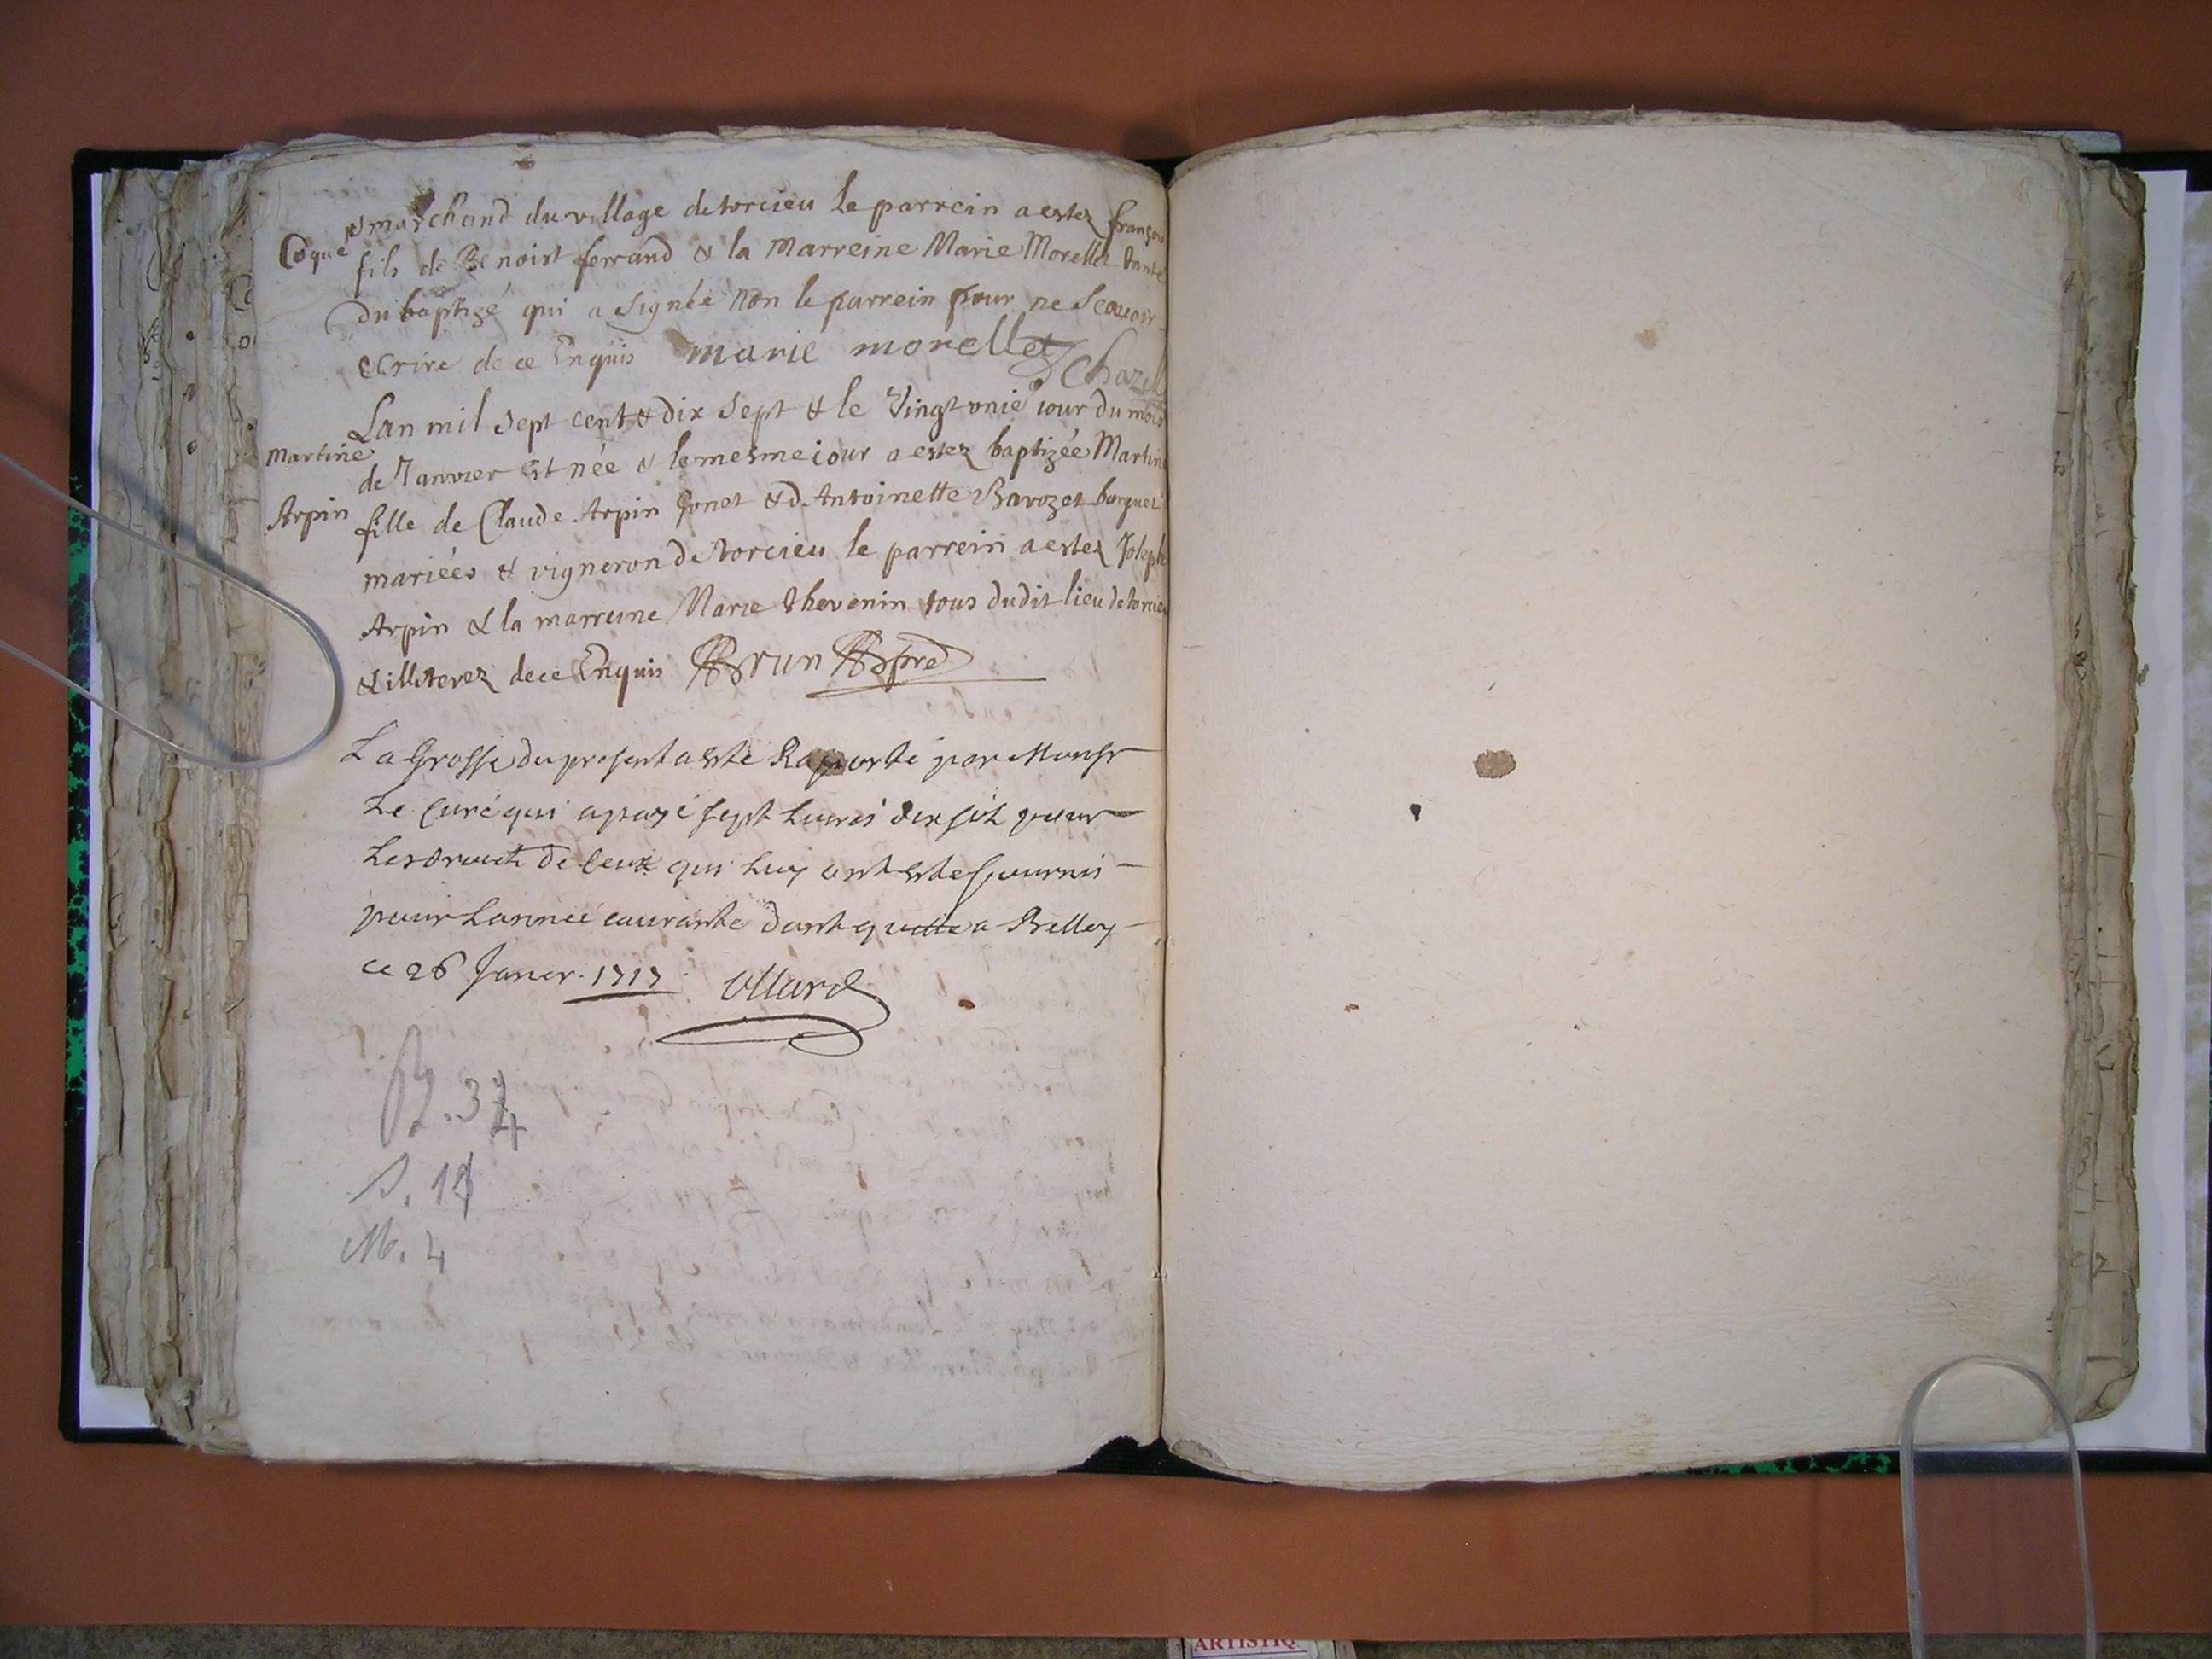 & marchand du village de torcieu le parrein a estez françois
Coque fils de Benoist ferrand & la Marreine Marie Morellet tante
du baptizé qui a signée non le parrein pour ne scavoir
escrire de ce Enquis marie morellet Chazel
Lan mil sept cent & dix sept & le Vingt onie iour du mois
Martine de Janvier est née & le mesme iour a estez baptizée Martine
Arpin fille de Claude Arpin Gonet & d Antoinette Barozet
mariées & vigneron de torcieu le parrein a estez Joseph
Arpin & la marreine Marie thevenin tous dudit lieu de torcieu
& illiterez de ce Enquis Brun
La Grosse du present a este Raporte par Monsr
Le Curé qui a payé sept livres dix solz pour
Les droicts de ceux qui Luy ont este fournis
pour Lannee courante dont quitte a Belley
ce 26 Janer. 1717 Ollard
B. 34
S. 1
M. 4
ARTISTIQ